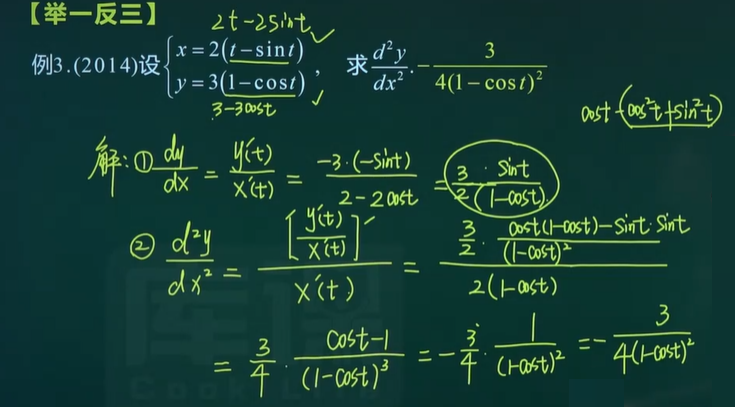 【举一反三】
2t-2sint ✓
例3.(2014)设{x=2(t-sint), y=3(1-cost) , 求 d²y/dx² . -3/(4(1-cost)²)
3-3cost ✓
cost-(cos²t+sin²t)
解:① dy/dx = y'(t)/x'(t) = -3·(-sint)/(2-2cost) = 3/2 · sint/(1-cost)
② d²y/dx² = [y'(t)/x'(t)]'/x'(t) = (3/2 · (cost(1-cost)-sint·sint)/(1-cost)²)/(2(1-cost))
= 3/4 · (cost-1)/(1-cost)³ = -3/4 · 1/(1-cost)² = -3/(4(1-cost)²)
库课